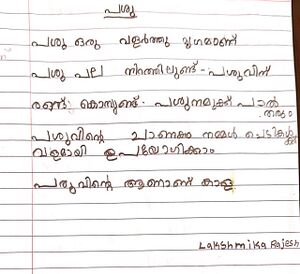 പശു
പശു ഒരു വളർത്തു മൃഗമാണ്
പശു പല നിറത്തിലുണ്ട്. പശുവിന്
രണ്ടു കൊമ്പുണ്ട്. പശു നമുക്ക് പാൽ തരും
പശുവിന്റെ ചാണകം നമ്മൾ ചെടികൾക്ക്
വളമായി ഉപയോഗിക്കാം
പശുവിന്റെ ആണാണ് കാള
Lakshmika Rajesh